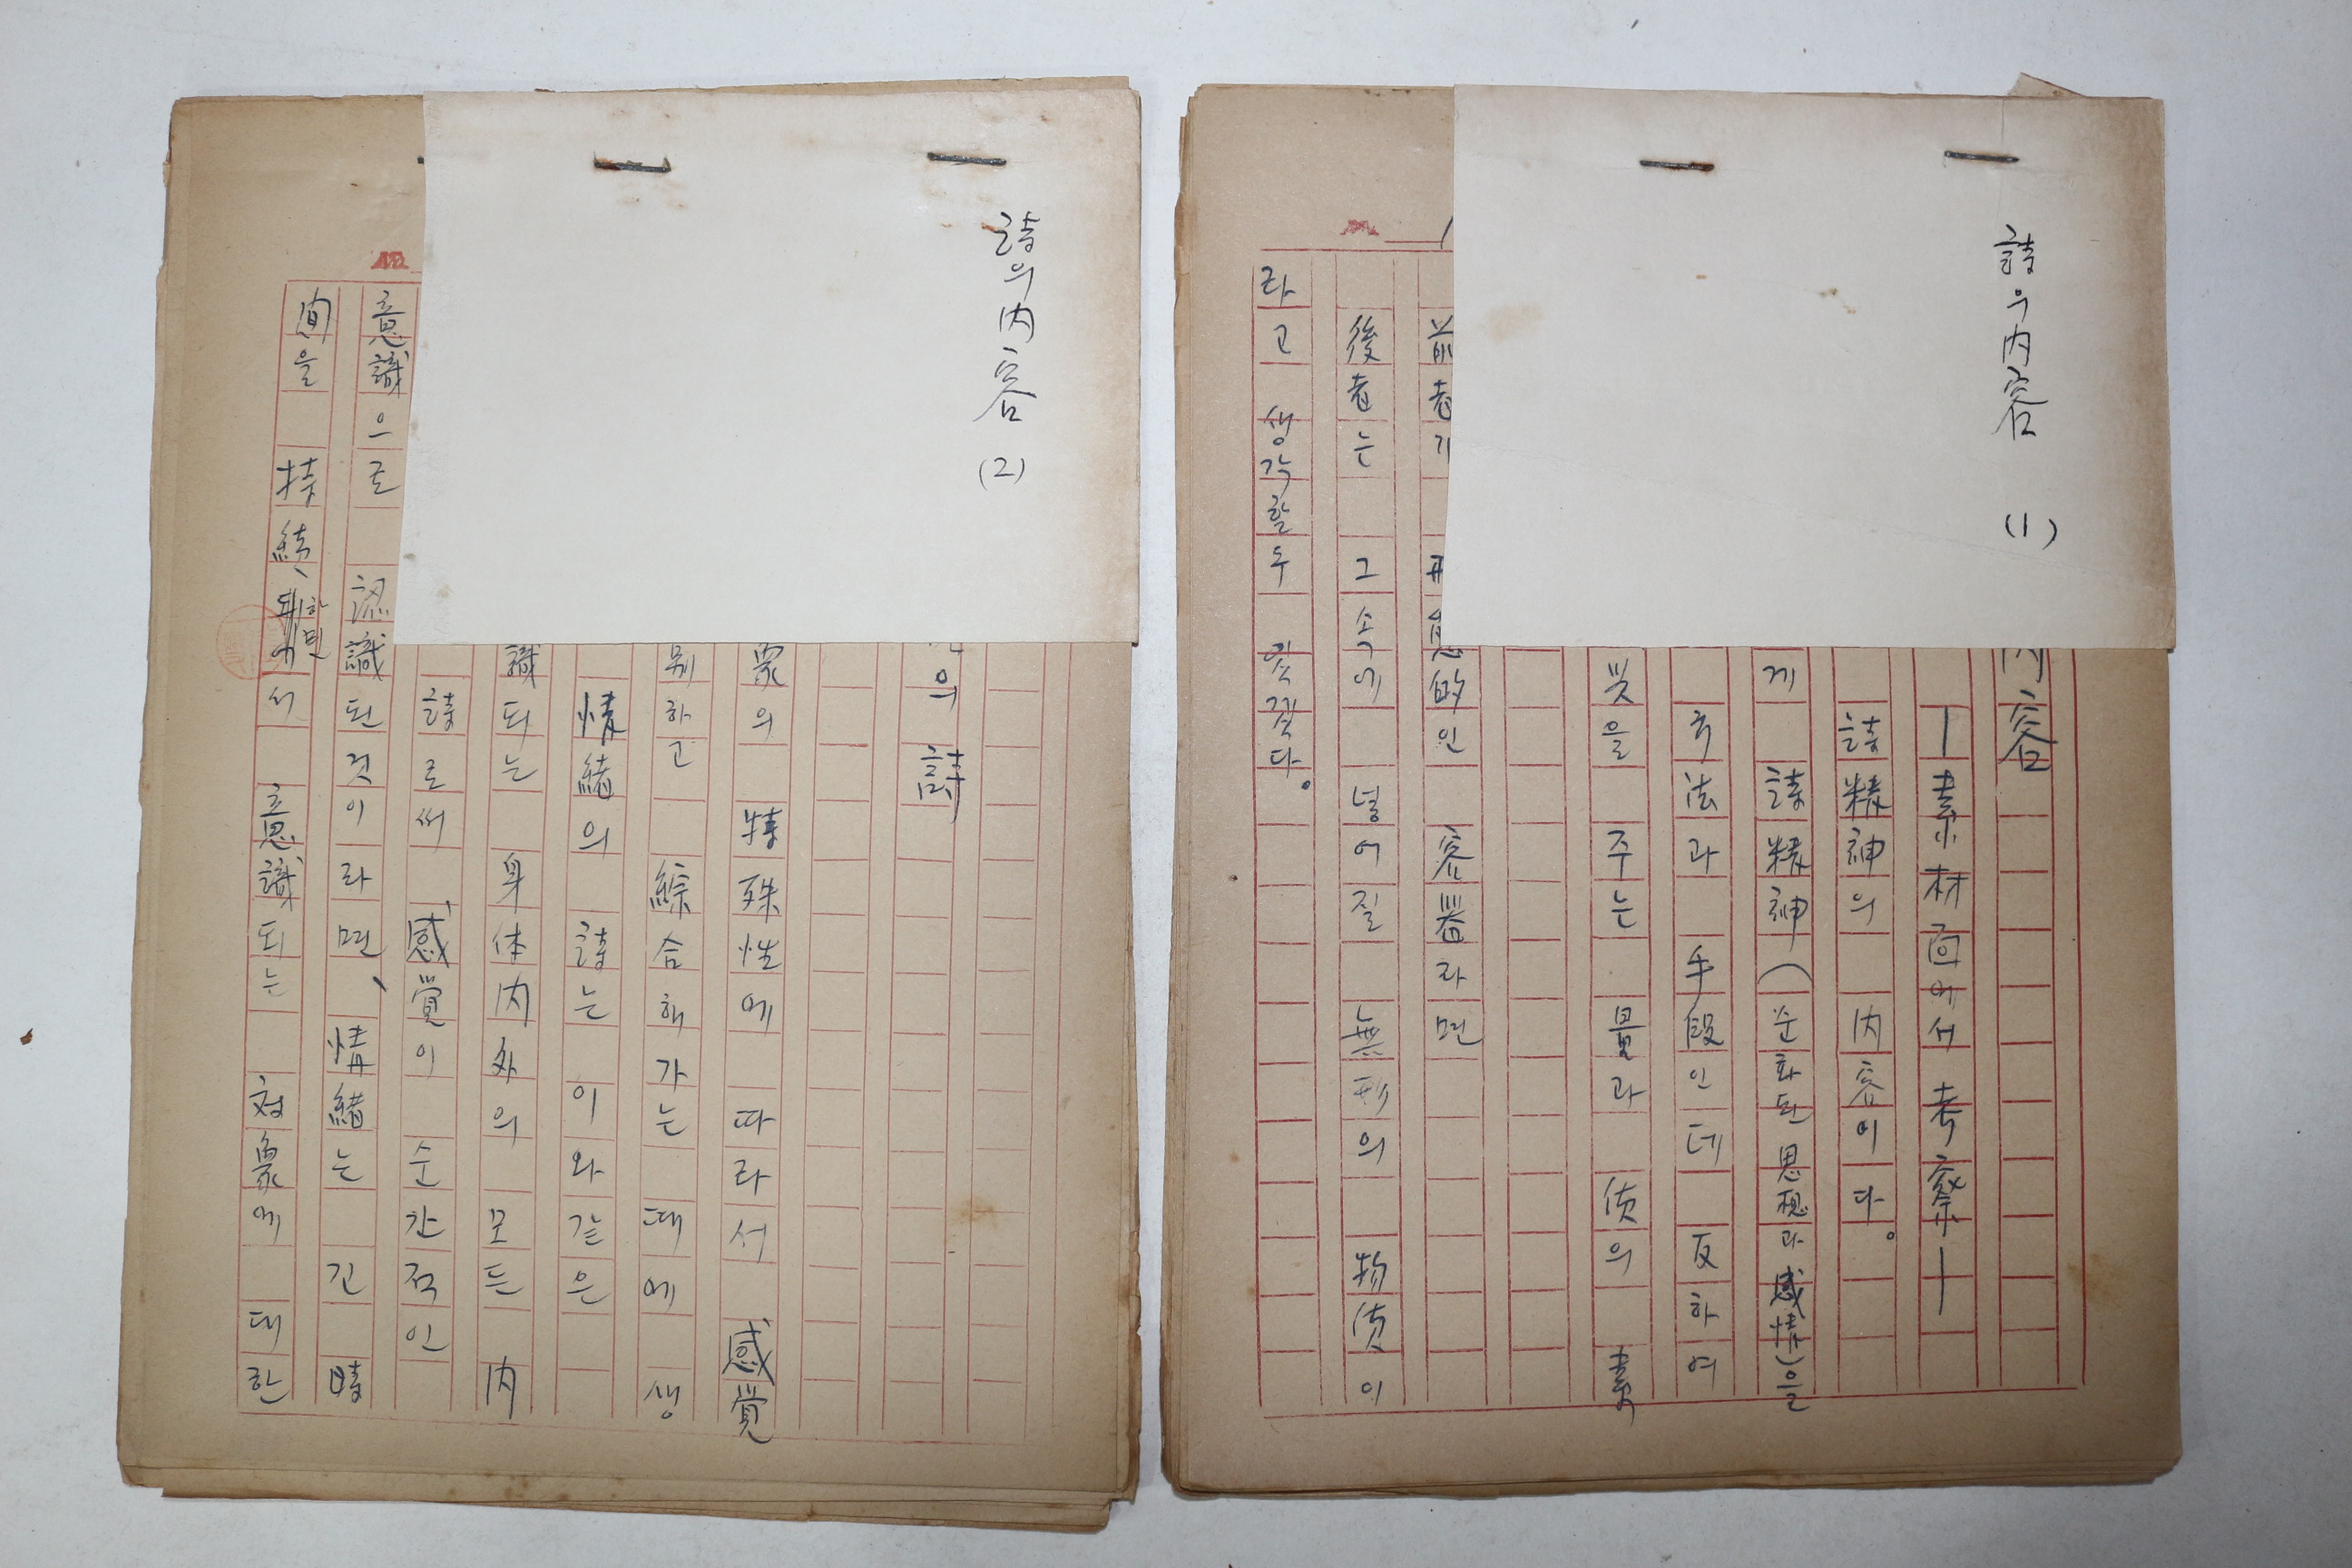 詩의内容 (1)
内容
―素材面에서考察―
詩精神의 内容이다。
게 詩精神(순화된思想과感情)을
方法과 手段인데 反하여
을 주는 量과 质의
前者가 形態的인 容器라면
後者는 그 속에 넣어질 無形의 物质이
라고 생각할 수 있겠다。
詩의内容 (2)
의 詩
象의 特殊性에 따라서 感覚
別하고 綜合해가는 때에 생
情緖의 詩는 이와 같은
識되는 身体内外의 모든 内
詩로써 感覚이 순간적인
意識으로 認識된 것이라면、 情緖는 긴 時
间을 持続、하면서 意識되는 対象에 대한